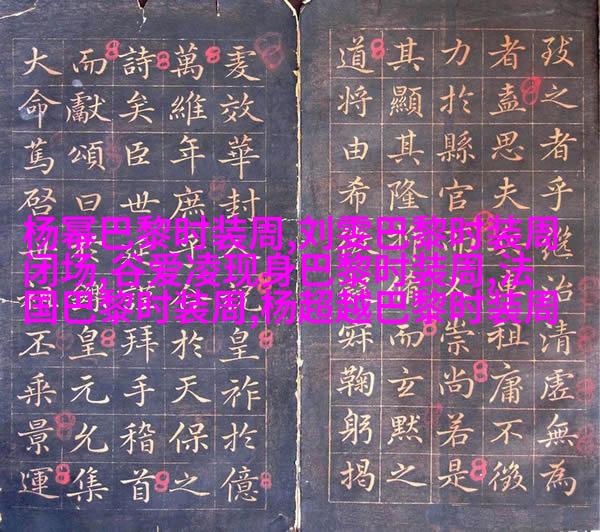 杨幂巴黎时装周,刘雯巴黎时装周
闭场,谷爱凌现身巴黎时装周,法
国巴黎时装周,杨超越巴黎时装周
之者乎継治清虛無為
者盍思夫祖庸不徵
力於縣官崇尚若是
其顯其隆而玄默之
道將由希鞠躬揭
效華封皇祚於億
萬維年庶於天保之
詩矣臣世拜手稽首
而獻頌曰皇元允集
大命篤啓丕乘景運